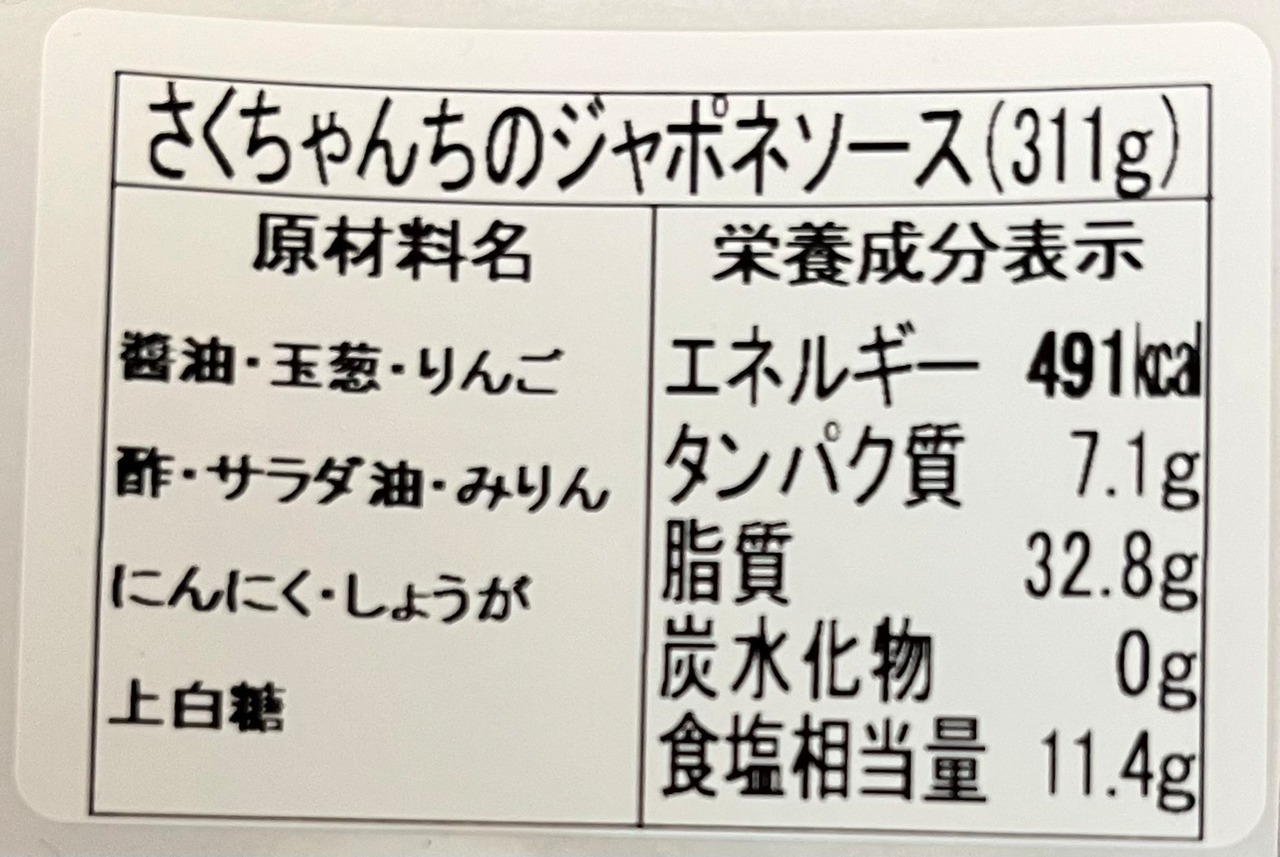 さくちゃんちのジャポネソース(311g)
原材料名
醬油・玉葱・りんご
酢・サラダ油・みりん
にんにく・しょうが
上白糖
栄養成分表示
エネルギー 491kcal
タンパク質 7.1g
脂質 32.8g
炭水化物 0g
食塩相当量 11.4g